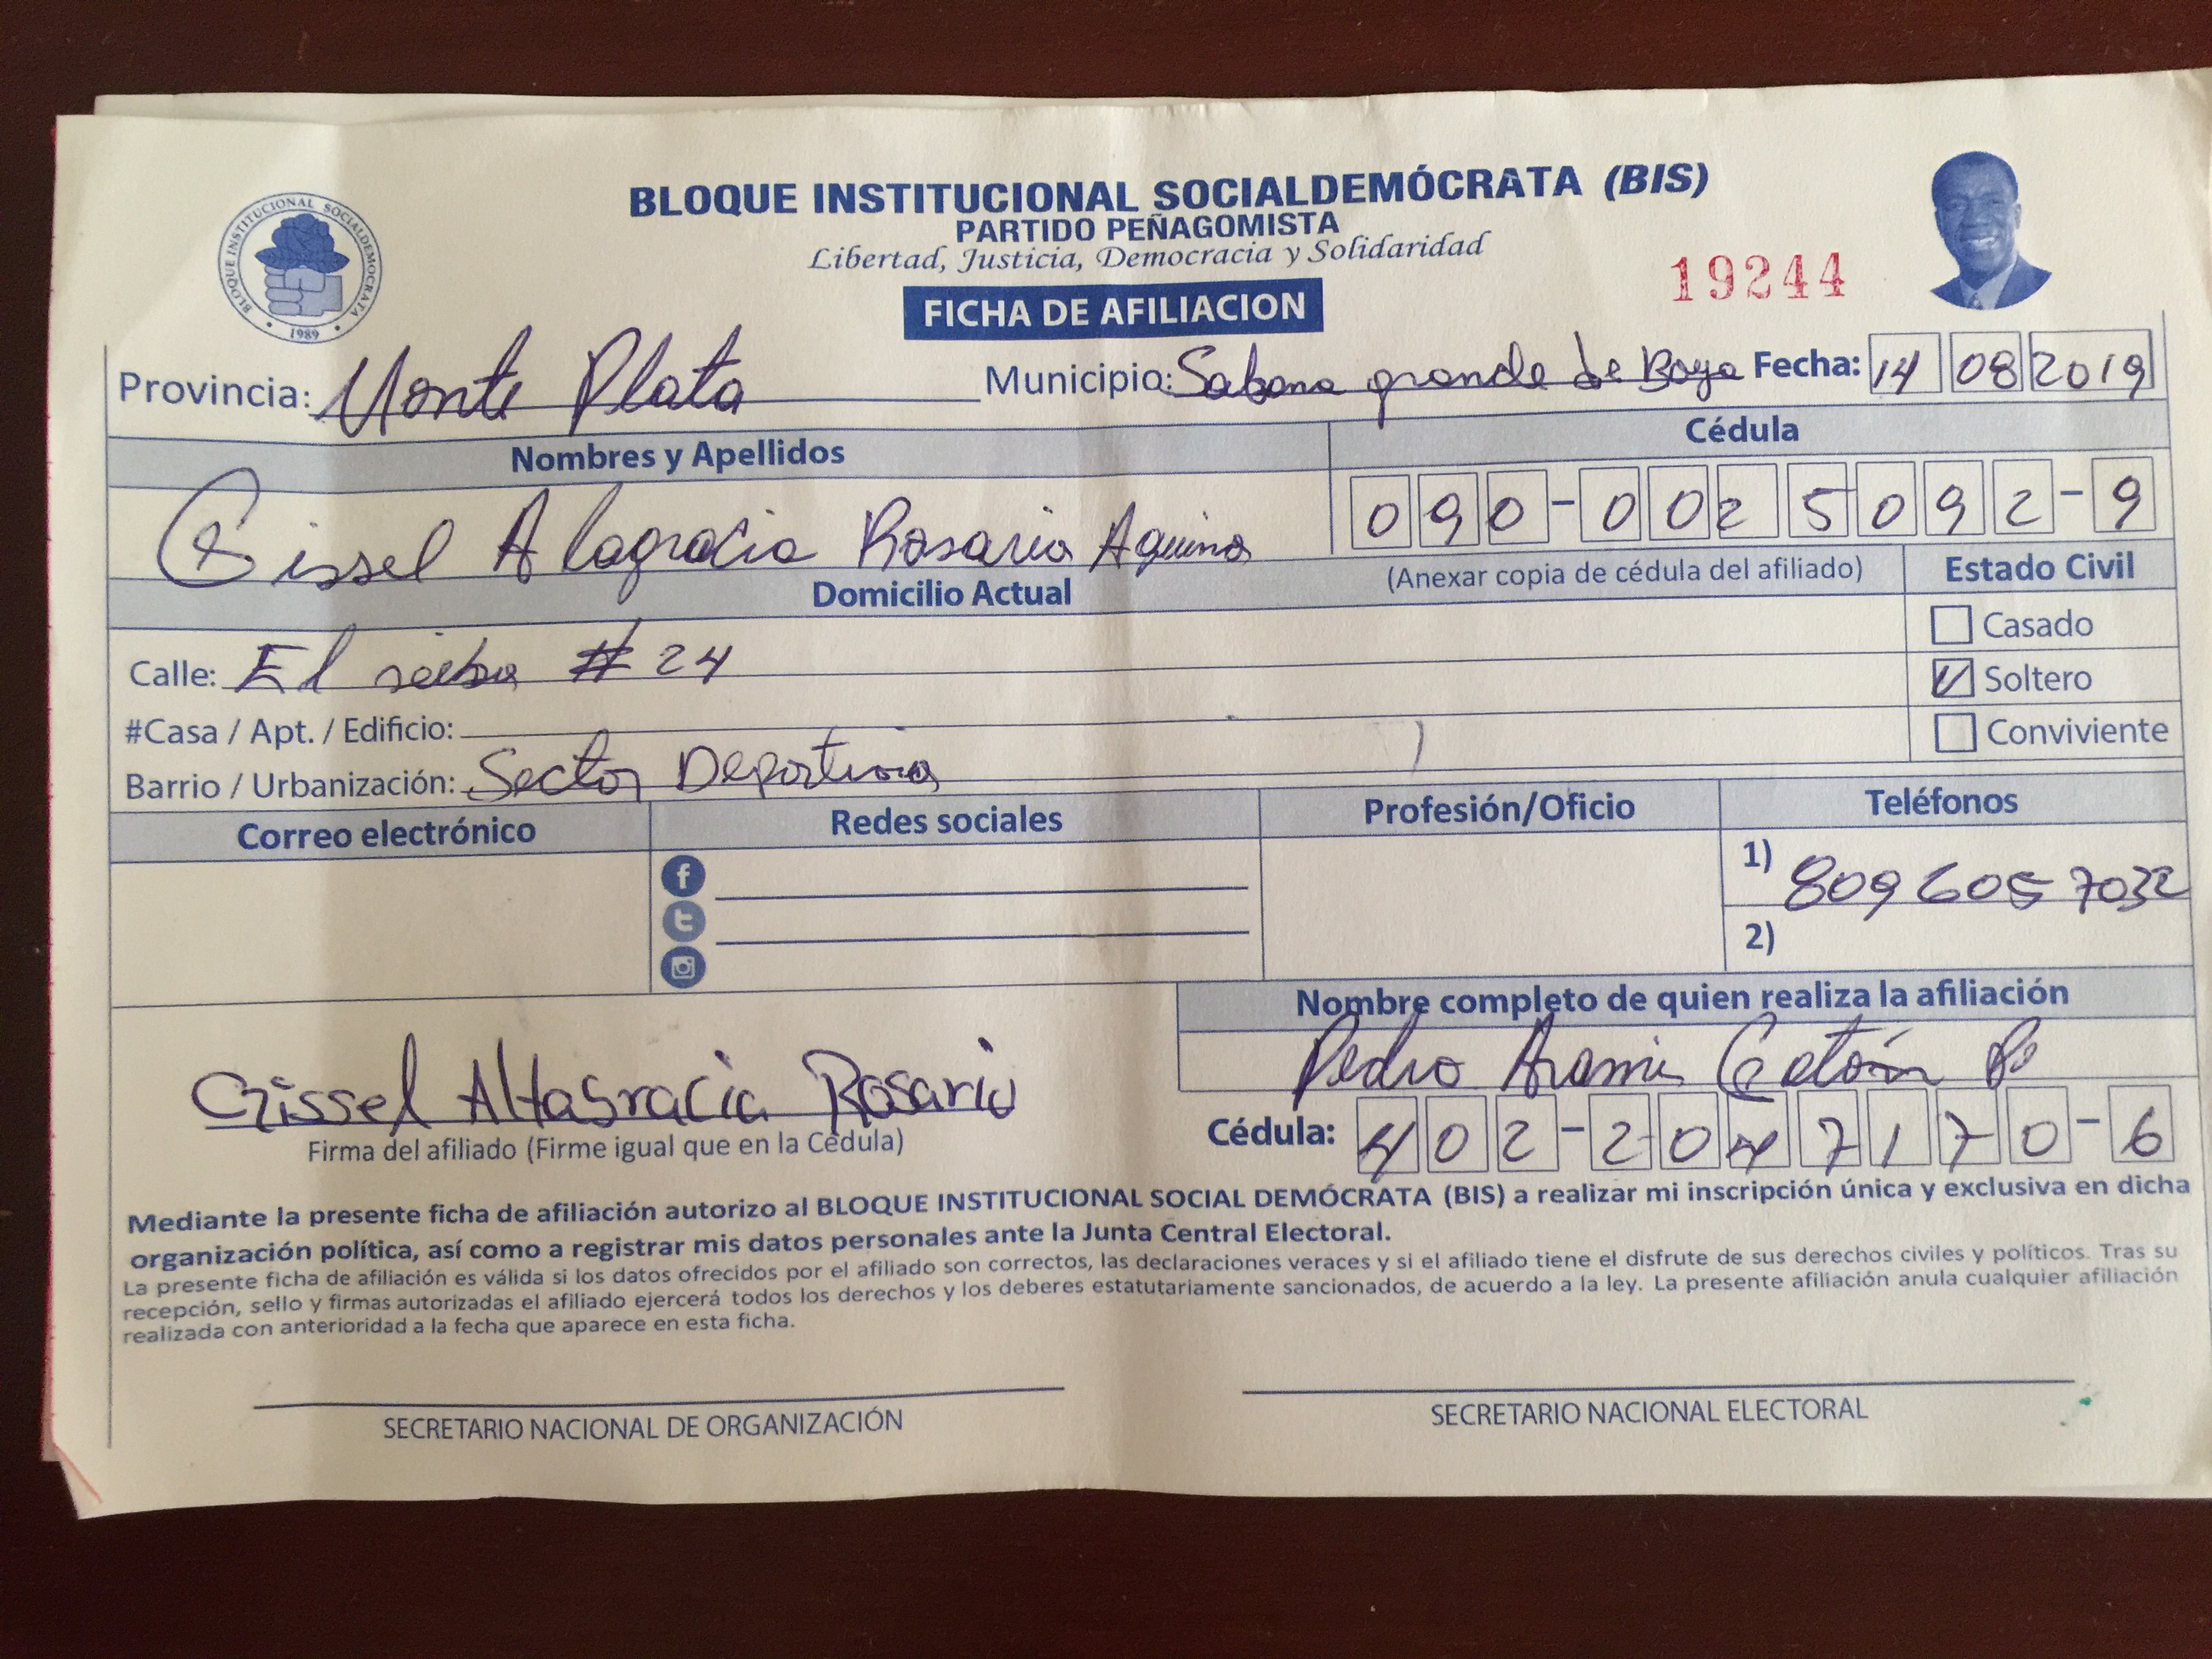 BLOQUE INSTITUCIONAL SOCIALDEMÓCRATA (BIS)
PARTIDO PEÑAGOMISTA
Libertad, Justicia, Democracia y Solidaridad
BLOQUE INSTITUCIONAL SOCIALDEMÓCRATA
1989
19244
FICHA DE AFILIACION
Provincia: Monte Plata Municipio: Sabana grande de Boya Fecha: 14 08 2019
Nombres y Apellidos Cédula
Gissel Alagracia Rosario Aquino 090-0025092-9
(Anexar copia de cédula del afiliado) Estado Civil
Domicilio Actual
Casado
Calle: El #24
Soltero
#Casa / Apt. / Edificio:
Conviviente
Barrio / Urbanización: Sector Deportivo
Correo electrónico Redes sociales Profesión/Oficio Teléfonos
1) 809 605 7032
2)
Nombre completo de quien realiza la afiliación
Pedro Aramis
Gissel Altagracia Rosario
Firma del afiliado (Firme igual que en la Cédula)
Cédula: 402-2047170-6
Mediante la presente ficha de afiliación autorizo al BLOQUE INSTITUCIONAL SOCIAL DEMÓCRATA (BIS) a realizar mi inscripción única y exclusiva en dicha
organización política, así como a registrar mis datos personales ante la Junta Central Electoral.
La presente ficha de afiliación es válida si los datos ofrecidos por el afiliado son correctos, las declaraciones veraces y si el afiliado tiene el disfrute de sus derechos civiles y políticos. Tras su
recepción, sello y firmas autorizadas el afiliado ejercerá todos los derechos y los deberes estatutariamente sancionados, de acuerdo a la ley. La presente afiliación anula cualquier afiliación
realizada con anterioridad a la fecha que aparece en esta ficha.
SECRETARIO NACIONAL DE ORGANIZACIÓN
SECRETARIO NACIONAL ELECTORAL